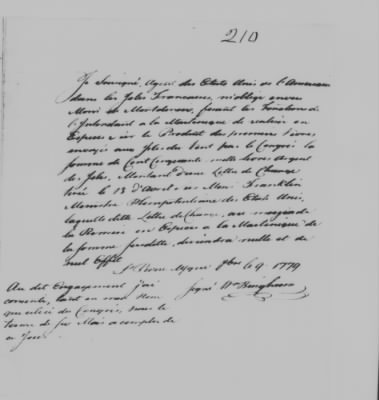 210
Je Soussigné, Agent des Etats Unis de l'Amerique
dans les Isles Francaises, m'oblige envers
Monsr de Montdenoix, faisant les Fonctions de
l'Intendant à la Martinique de realiser en
Especes sur le Produit des premiers Vivres
envoyés aux Isles du Vent par le Congrès la
somme de Cent Cinquante mille livres Argent
des Isles, Montant d'une Lettre de Change
tirée le 13 d'Aout sur Monr Franklin
Ministre Plenipotentiaire des Etats Unis,
laquelle ditte Lettre de Change, au moyen de
la Remise en Especes a la Martinique de
la somme susditte, deviendra nulle et de
nul Effet
St Pierre Mque 8bre le 9 1779
signé Wm Bingham
Au dit Engagement j'ai
consenti, tant en mon Nom
que celui du Congrès, sous le
terme de Six Mois a compter de
ce Jour